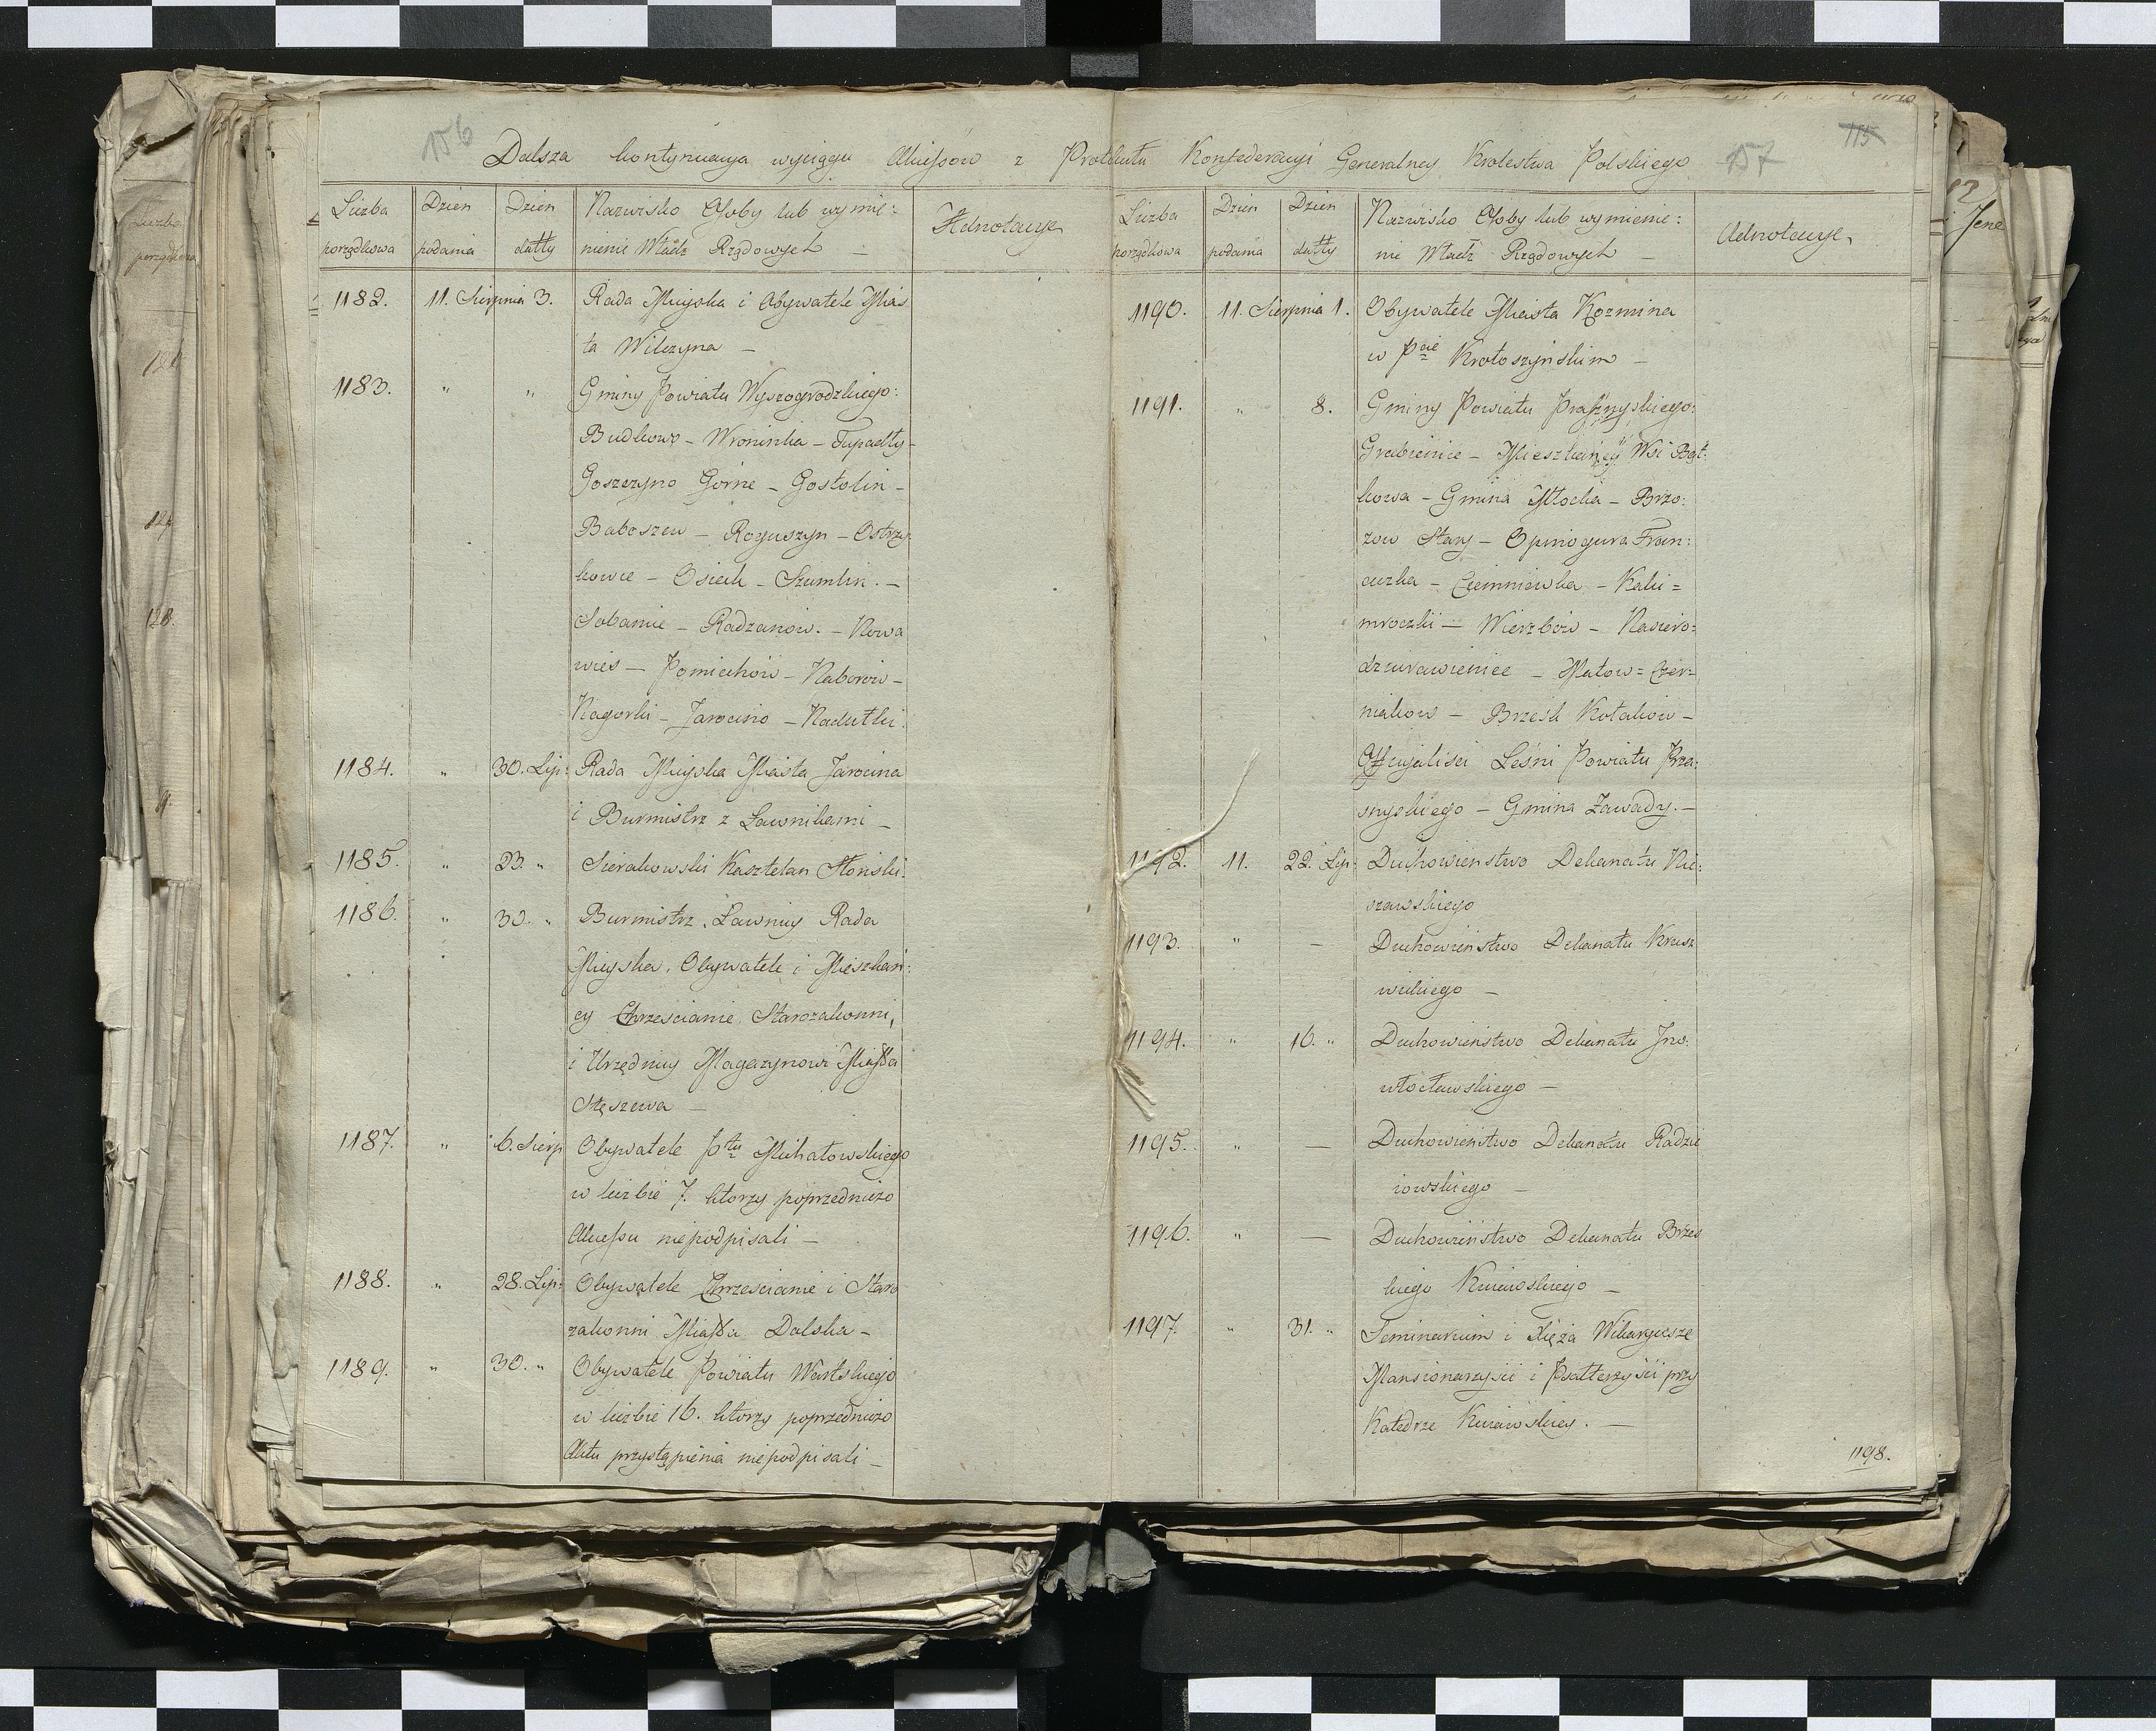 156
Dalsza kontynuacya wyciągu Akcessow z Protokułu Konfederacyi Generalney Krolestwa Polskiego
157
115
Liczba porządkowa
Dzien podania
Dzien datty
Nazwisko Osoby lub wymie:
nienie Władz Rządowych —
Adnotacye
1182. 11. Sierpnia 3. Rada Mieyska i Obywatele Mias
ta Wilczyna —
1183. " " Gminy Powiatu Wyszogrodzkiego:
Budkowo – Wroninka – Tupadły –
Goszczyno Górne – Gostolin –
Baboszew – Roguszyn – Ostrzy
kowie – Osiek – Szumlin. –
Sobanie – Radzanow. – Nowa
wies — Pomiechow – Naborow –
Nagorki – Jarocino – Nadułki.
1184. " 30. Lip: Rada Mieyska Miasta Jarocina
i Burmistrz z Ławnikami —
1185. " 23. " Sierakowski Kasztelan Słonski:
1186. " 30. " Burmistrz. Ławnicy Rada
Mieyska. Obywatele i Mieszkań:
cy Chrzescianie Starozakonni,
i Urzędnicy Magazynowi Miasta
Stęszewa —
1187. " 6. Sierp Obywatele Ptu Michałowskiego
w liczbie 7. ktorzy poprzedniczo
Akcessu niepodpisali —
1188. " 28. Lip: Obywatele Chrzescianie i Staro
zakonni Miasta Dolska –
1189. " 30. " Obywatele Powiatu Wartskiego
w liczbie 16. ktorzy poprzedniczo
Aktu przystąpienia niepodpisali —
Liczba porządkowa
Dzien podania
Dzien datty
Nazwisko Osoby lub wymienie:
nie Władz Rządowych —
Adnotacye
1190. 11. Sierpnia 1. Obywatele Miasta Kozmina
w Pcie Krotoszyńskim —
1191. " 8. Gminy Powiatu Prasznyskiego:
Grabienice – Mieszkańcy Wsi Bąt:
kowa – Gmina Młocka – Brzo:
zow Stary – Opinogura Fran:
cuzka – Ciemniewka – Kaki =
mroczki — Wierzbow – Nasiero=
dziurawieniec – Matow = Czer=
niakow – Brzesk Kołakow –
Officyalisci Leśni Powiatu Prza:
snyskiego – Gmina Zawady. –
1192. 11. 22. Lip: Duchowienstwo Dekanatu Nie:
szawskiego
1193. " — Duchowieństwo Dekanatu Krusz
wickiego —
1194. " 16. " Duchowieństwo Dekanatu Jno:
włocławskiego —
1195. " — Duchowieństwo Dekanatu Radzie
iowskiego —
1196. " — Duchowieństwo Dekanatu Brzes
kiego Kuiawskiego —
1197. " 31. " Seminarium i Xięża Wikaryusze
Mansionarzyści i Psałterzyści przy
Katedrze Kuiawskiey. —
1198.